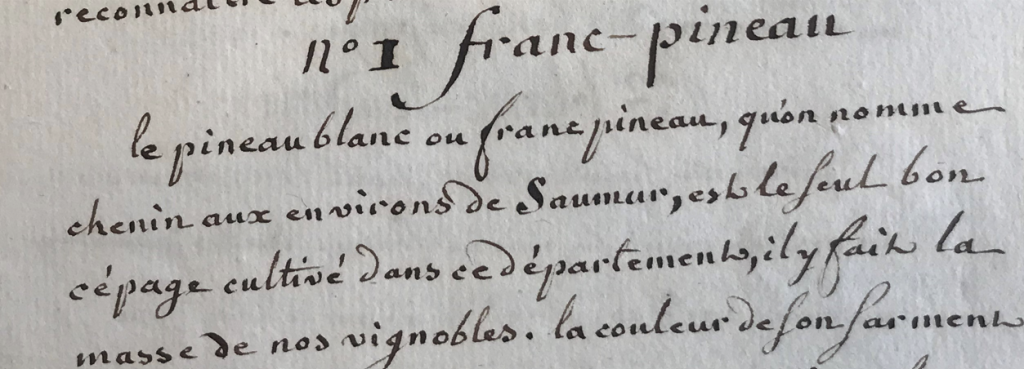 reconnaitre
n° 1 franc-pineau
le pineau blanc ou franc pineau, qu'on nomme
chenin aux environs de Saumur, est le seul bon
cépage cultivé dans ce département, il y fait la
masse de nos vignobles. la couleur de son sarment